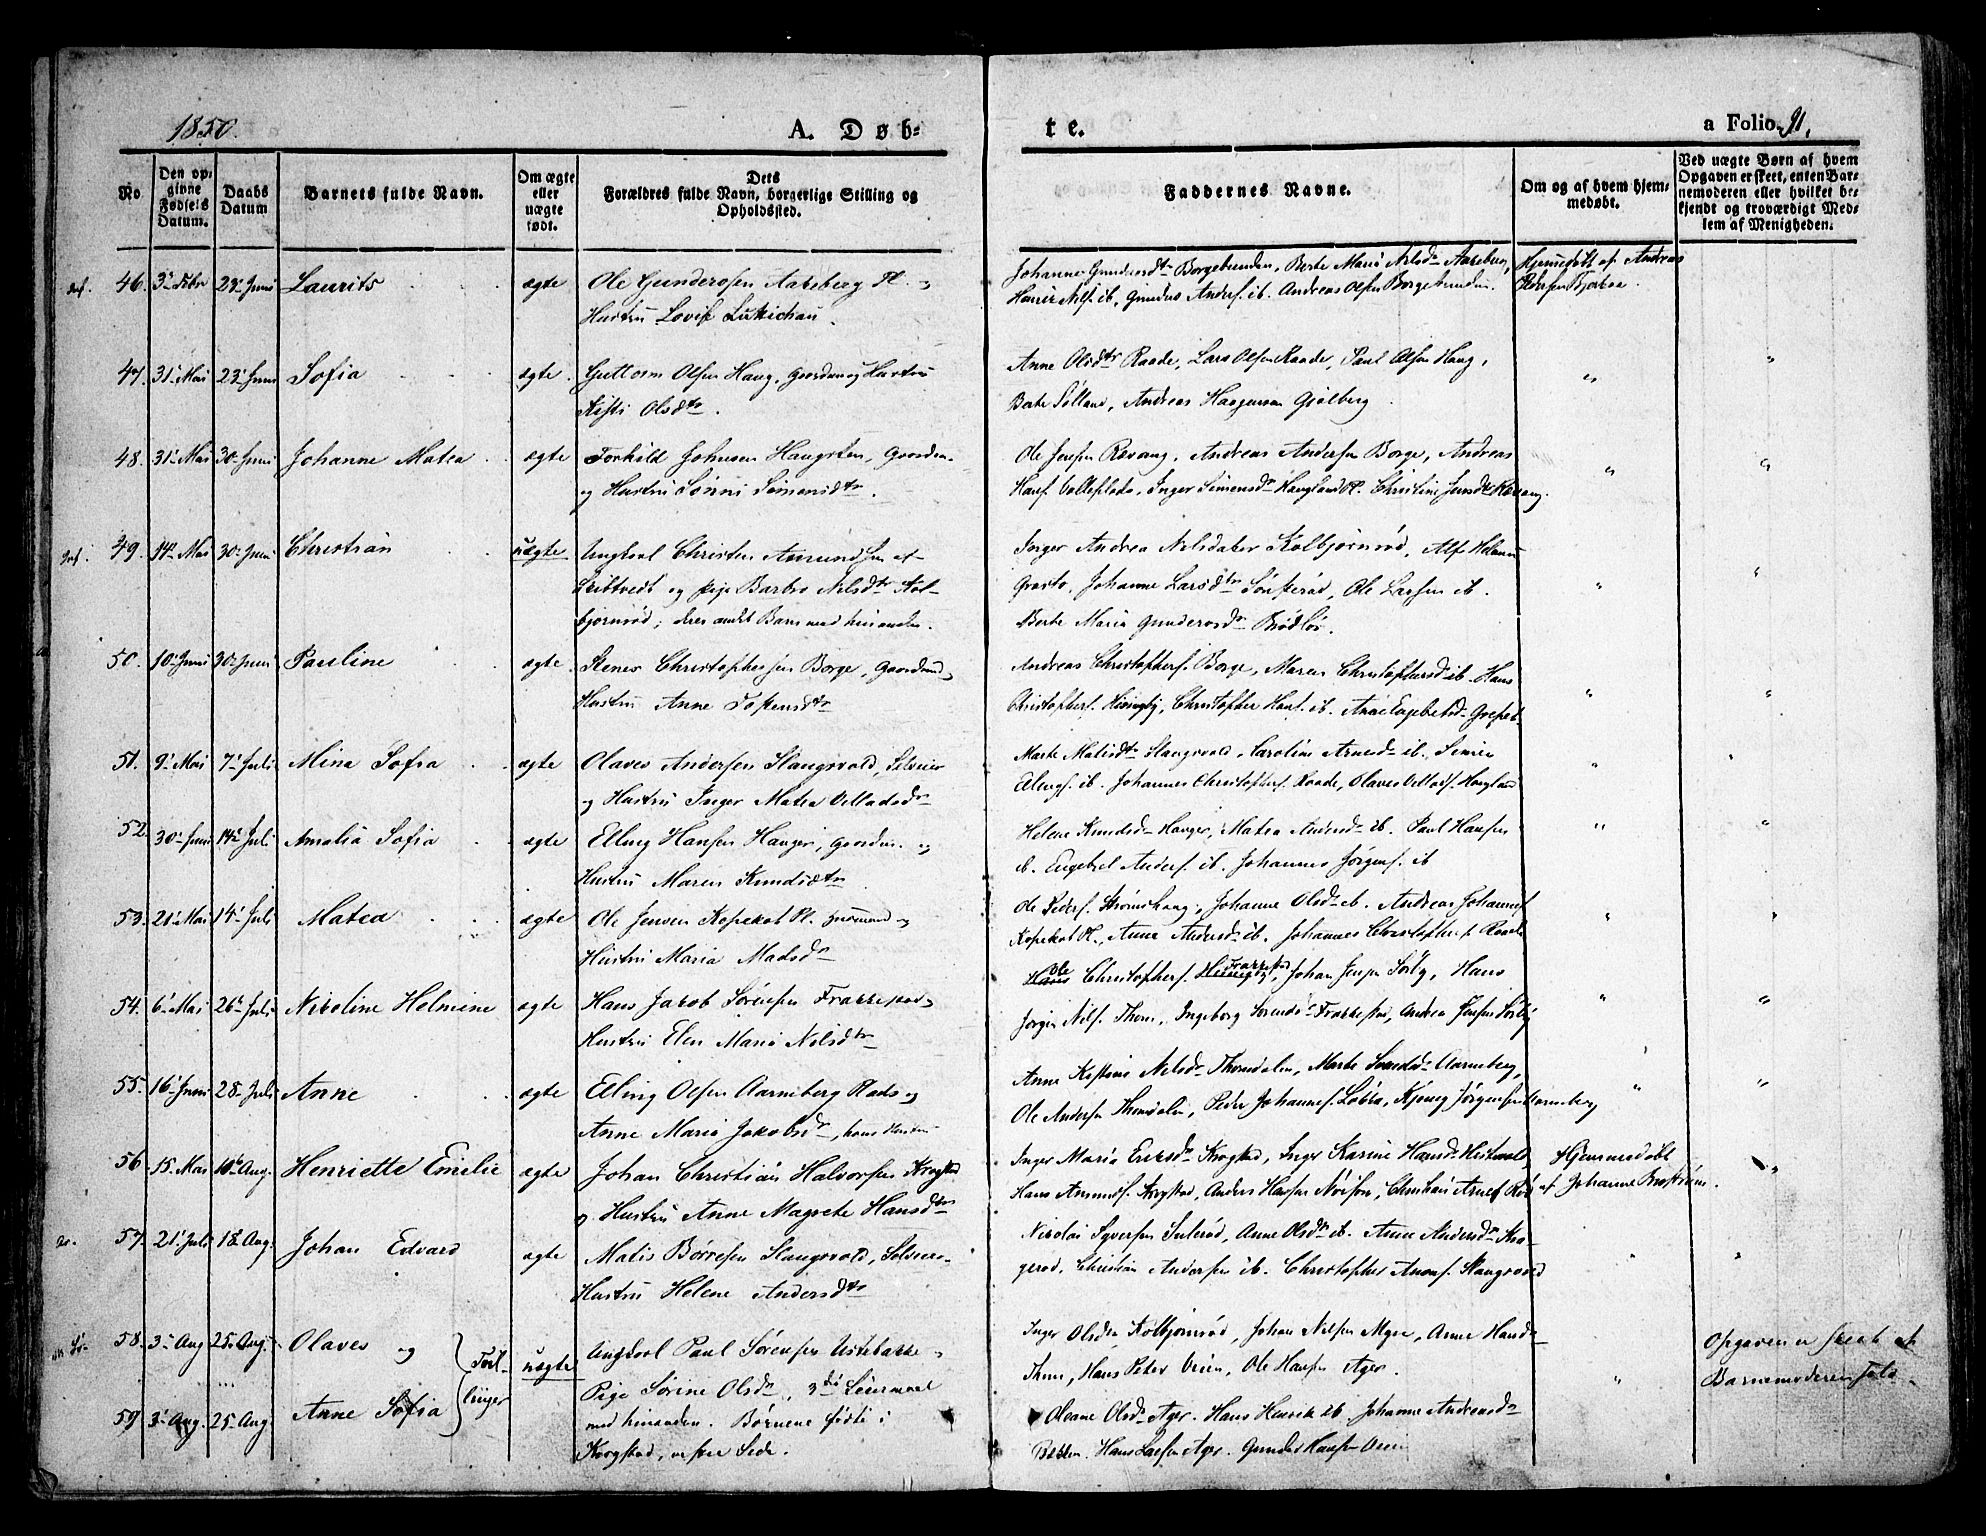 1850.
A. Døb-
te.
a Folio 91.
No
Den op-
givne
Fødsels
Datum.
Daabs
Datum
Barnets fulde Navn.
Om ægte
eller
uægte
født.
Dets
Forældres fulde Navn, borgerlige Stilling og
Opholdssted.
Faddernes Navne.
Om og af hvem hjem-
medøbt.
Ved uægte Børn af hvem
Opgaven er skeet, enten Bar-
nemoderen eller hvilket be-
kjendt og troværdigt Med-
lem af Menigheden.
46. 3 Febr 23 Juni Laurits ægte Ole Gundersen Aarsberg Pl. og
Hustru Lovise
Johanne Gundersdtr Borgebunden, Berte Maria Nilsdr Aarsberg,
Nils. ib, Gunder Anders. ib. Andreas Olsen Borgebunden.
Hjemmedøbt af Andreas
47. 31 Mai 23 Juni Sofia ægte. Guttorm Olsen Haug, Gaardm og Hustru
Kisti Olsdtr.
Anne Olsdtr Raade, Lars Olsen Raade, Paul Olsen Haug,
Berte Sølland, Andreas Haagensen Gjølberg
"
"
48. 31 Mai 30 Juni Johanne Matea ægte Torkild Johnsen Haugsten, Gaardm.
og Hustru Sønni Simensdtr.
Ole Jensen Røvang, Andreas Andersen Borge, Andreas
Hans. Valleplads, Inger Simensdr Haugland Pl. Christine Jensdtr Røvang.
"
"
49. 14 Mai 30 Juni Christian uægte Ungkarl Christen Amundsen
Skibtvedt og pige Barbro Nilsdtr Kol-
bjørnrød; deres andet Barn med hinanden.
Inger Andrea Nilsdatter Kolbjørnrød,
Johanne Larsdtr Ole Larsen ib.
Berte Maria Gundersdr
"
"
50. 10 Juni 30 Juni Pauline ægte. Stener Christophersen Borge, Gaardmd og
Hustru Anne Tostensdtr
Andreas Christophers. Borge, Maren Christophersd ib. Hans
Christophers. Huseby, Christopher Hans. ib. Anne Engebretsd.
"
"
51. 9 Mai 7 Juli Mina Sofia ægte Olaves Andersen Slangsvold, Selveier
og Hustru Inger Matea Velladsdr
Marte Matisdtr Slangsvold, Caroline Arnesdr ib.
ib. Johannes Christophers. Raade, Olaves Vellads. Haugland
"
"
52. 30 Juni 14 Juli Amalia Sofia ægte Elling Hansen Hanger, Gaardm. og
Hustru Maren Knudsdtr
Helene Knudsd Hanger, Matea Andersd ib. Paul Hansen
ib. Engebret Anders. ib. Johannes Jørgens. ib
"
"
53. 21 Mai 14 Juli Matea ægte Ole Jensen Kopekot Pl. og
Hustru Maria Madsdr
Ole Peders. Strømshaug, Johanne Olsdr ib. Andreas Johannes.
Kopekot Pl., Anne Andersdr ib. Johannes Christophers. Raade
"
"
54. 6 Mai 26 Juli Nicoline Helmine ægte Hans Jacob Sørensen Frakkestad,
Hustru Elen Maria Nilsdtr
Ole Christophers. Frakkestad, Johan Jensen Sørby, Hans
Jørgen Nils. Thom, Ingeborg Sørensdr Frakkestad, Andrea Jensen Sørby
"
"
55. 16 Juni 28 Juli Anne ægte Elling Olsen Aarneberg Plads og
Anne Maria Jakobsdr, hans Hustru
Anne Kistine Nilsdr Thomdalen, Marte Svendsdr Aarneberg,
Ole Andersen Thomdalen, Peder Johannes. Løbra, Jørgensen Aarneberg
"
"
56 15 Mai 10 Aug. Henriette Emelie ægte Johan Christian Halvorsen Krogstad
og Hustru Anne Magrete Hansdtr
Inger Maria Eriksdr Krogstad, Inger Karine Hansdr
Hans Amunds. Krogstad, Anders Hansen
Hjemmedøbt
af Johanne
"
57. 21 Juli 18 Aug. Johan Edvard ægte Matis Børresen Slangsvold, Selveier.
Hustru Helene Andersdtr
Nicolai Syversen Sulerød, Anne Olsdtr ib. Anne Andersdr Ska-
gerød, Christian Andersen ib. Christopher Slangsvold
"
"
58. 3 Aug 25 Aug Olaves og
Tvil-
linger
uægte Ungkarl Paul Sørensen Ustebakke,
Pige Sørine Olsdr, 3die Leiermaal
med hinanden. Børnene fødte i
Krogstad, vestre Side.
Inger Olsdr Kolbjørnrød, Johan Nilsen Myre, Anne Hansd
Thun, Hans Peter Veien, Ole Hansen Ager.
"
Opgaven er skeet af
Barnemoderen selv.
59 3 Aug. 25 Aug. Anne Sofia
Oleane Olsdr Ager. Hans Henrik ib. Johanne Andreasdr
Bakken. Hans Larsen Ager. Gunder Hansen Veien